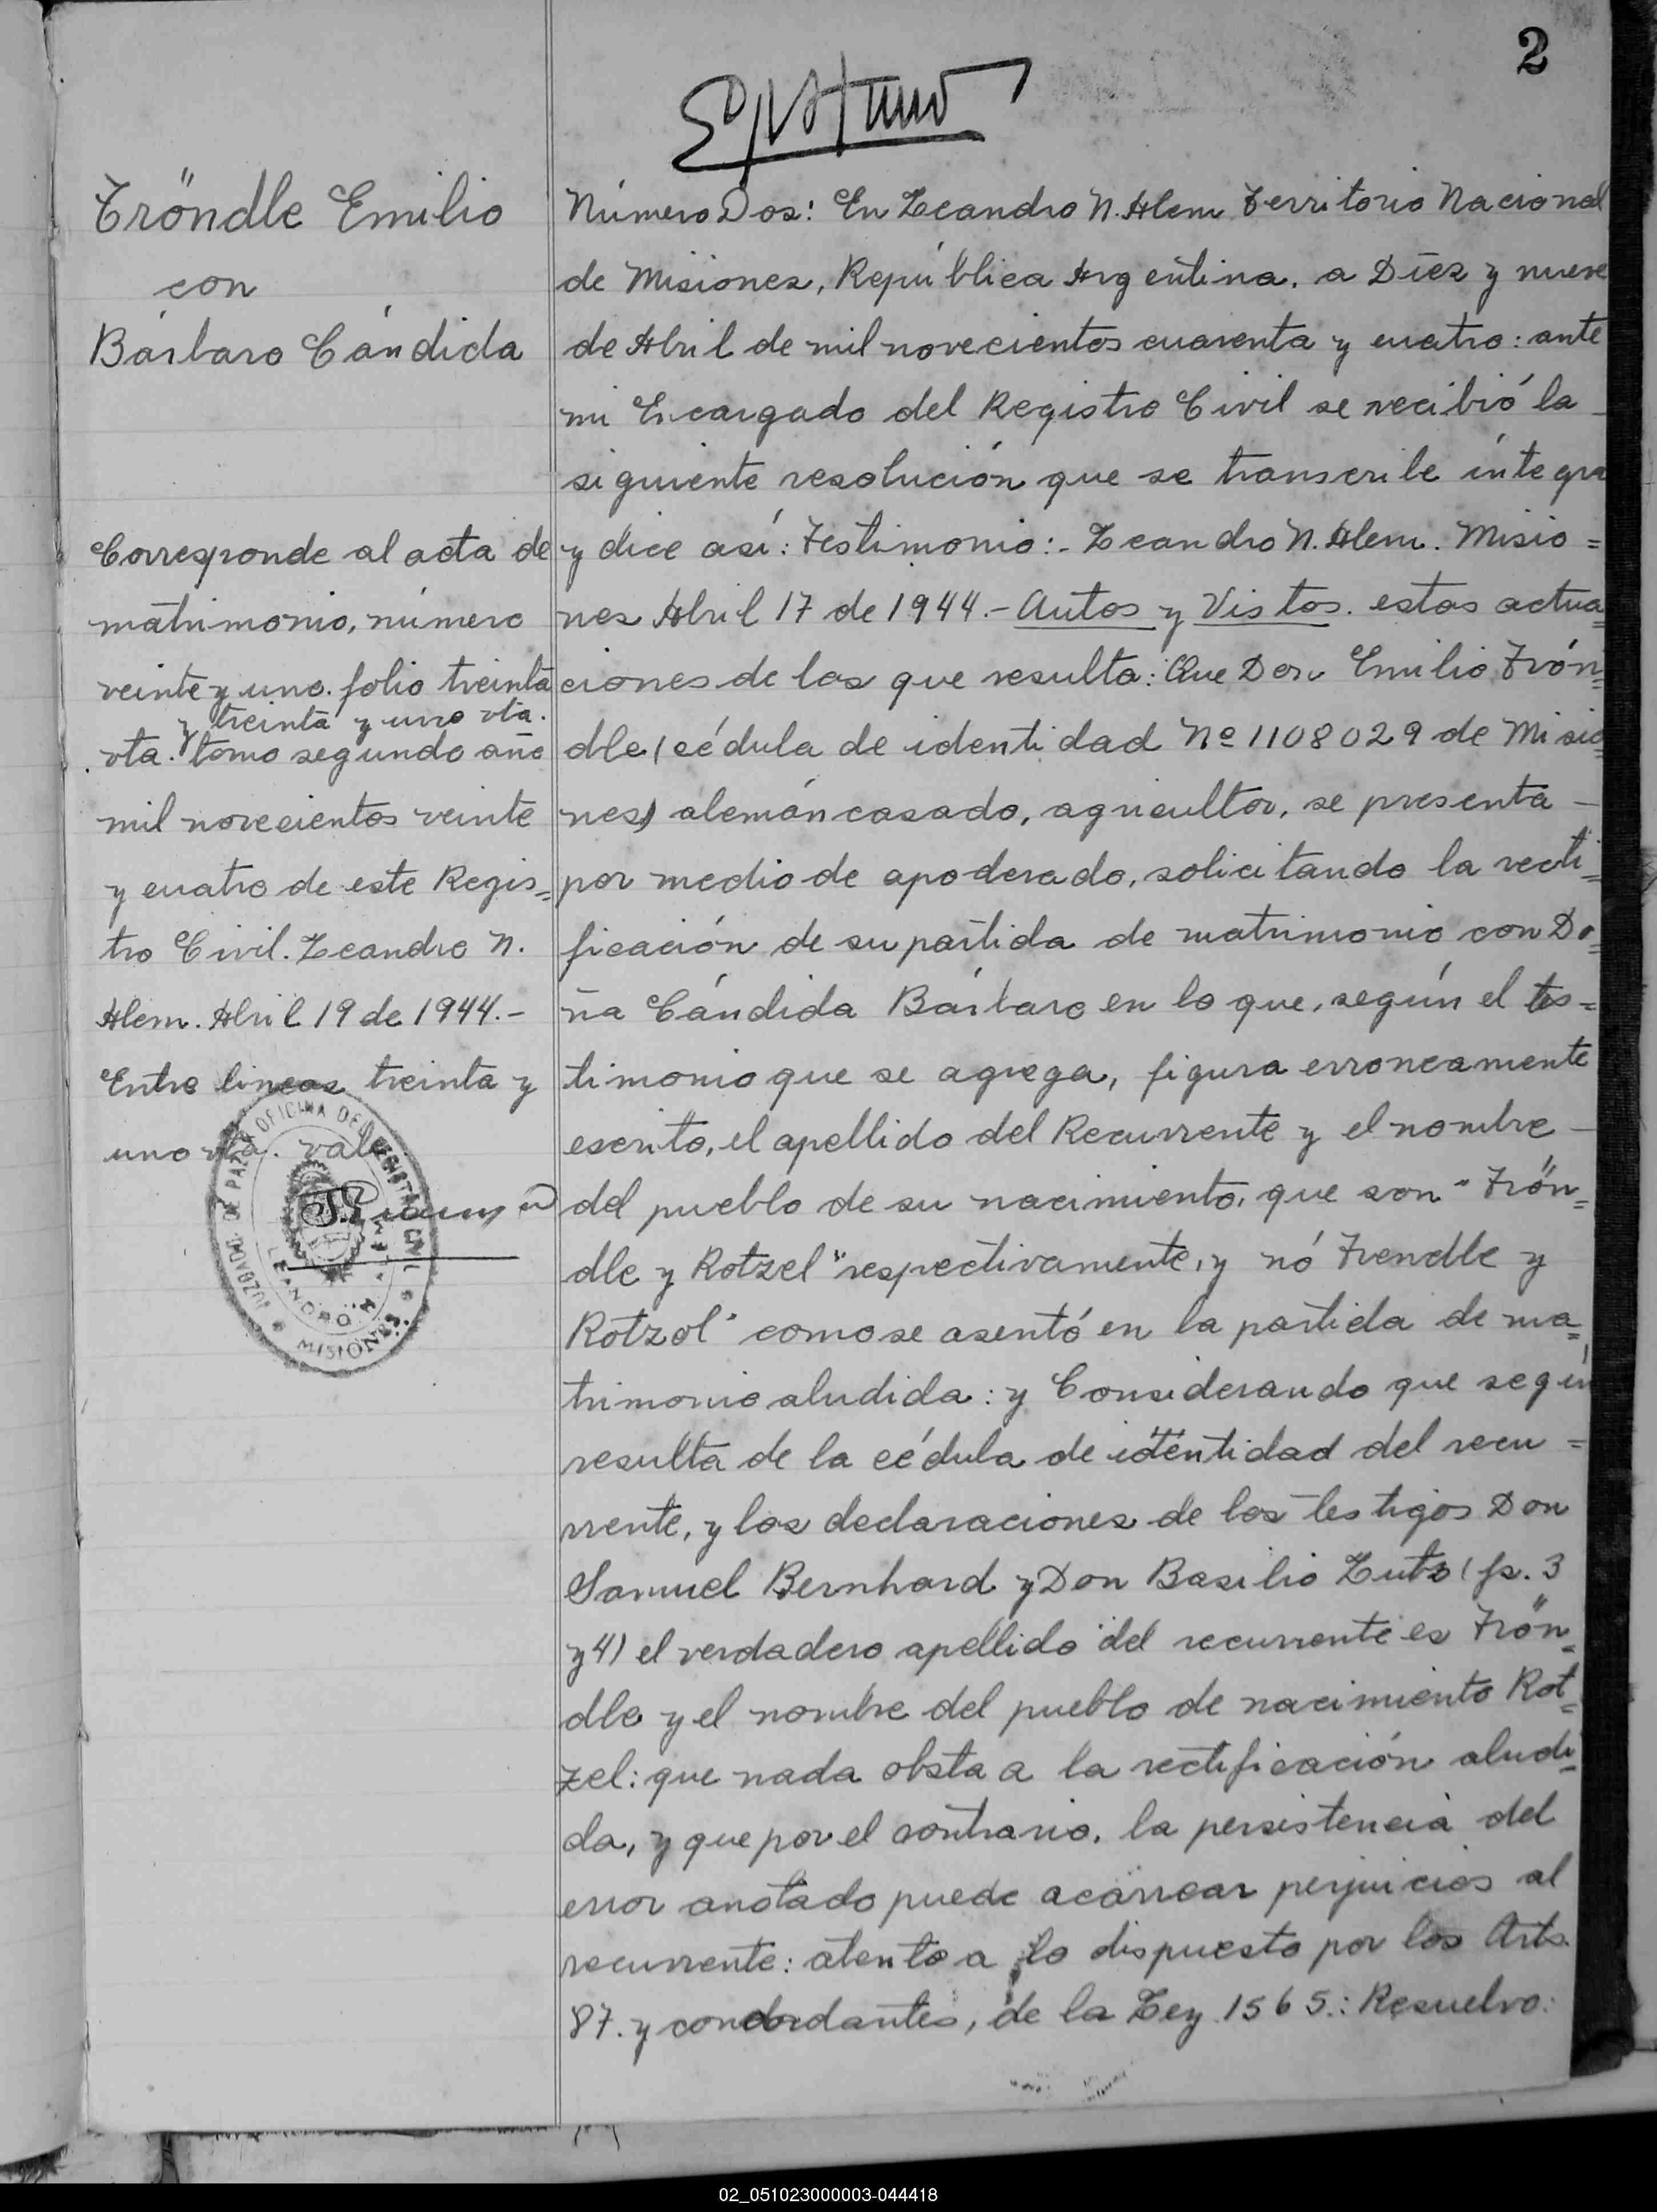 2
Tröndle Emilio
con
Bárbaro Cándida
Corresponde al acta de
matrimonio, número
veinte y uno. folio treinta
y treinta y uno vta.
vta. tomo segundo año
mil novecientos veinte
y cuatro de este Regis=
tro Civil. Leandro N.
Alem. Abril 19 de 1944.-
Entre lineas treinta y
uno vta. vale
JUZGADO DE PAZ OFICINA DEL REGISTRO CIVIL
LEANDRO N. ALEM
MISIONES
Número Dos: En Leandro N. Alem Territorio Nacional
de Misiones, República Argentina, a Diez y nueve
de Abril de mil novecientos cuarenta y cuatro: ante
mi Encargado del Registro Civil se recibió la
siguiente resolución que se transcribe íntegra
y dice así: Testimonio:- Leandro N. Alem. Misio=
nes Abril 17 de 1944.- Autos y Vistos. estas actua=
ciones de las que resulta: Que Don Emilio Trón=
dle (cédula de identidad Nº 1108029 de Misio=
nes) alemán casado, agricultor, se presenta -
por medio de apoderado, solicitando la recti=
ficación de su partida de matrimonio con Do=
ña Cándida Bárbaro en lo que, según el tes=
timonio que se agrega, figura erroneamente
escrito, el apellido del Recurrente y el nombre -
del pueblo de su nacimiento, que son "Trön=
dle y Rotzel" respectivamente, y nó Trendle y
Rotzol" como se asentó en la partida de ma=
trimonio aludida: y Considerando que según
resulta de la cédula de identidad del recu=
rrente, y las declaraciones de los testigos Don
Samuel Bernhard y Don Basilio Lutz (fs. 3
y 4) el verdadero apellido del recurrente es Trön=
dle y el nombre del pueblo de nacimiento Rot=
zel: que nada obsta a la rectificación aludi=
da, y que por el contrario, la persistencia del
error anotado puede acarrear perjuicios al
recurrente: atento a lo dispuesto por los Arts.
87. y concordantes, de la Ley 1565.: Resuelvo:
02_051023000003-044418